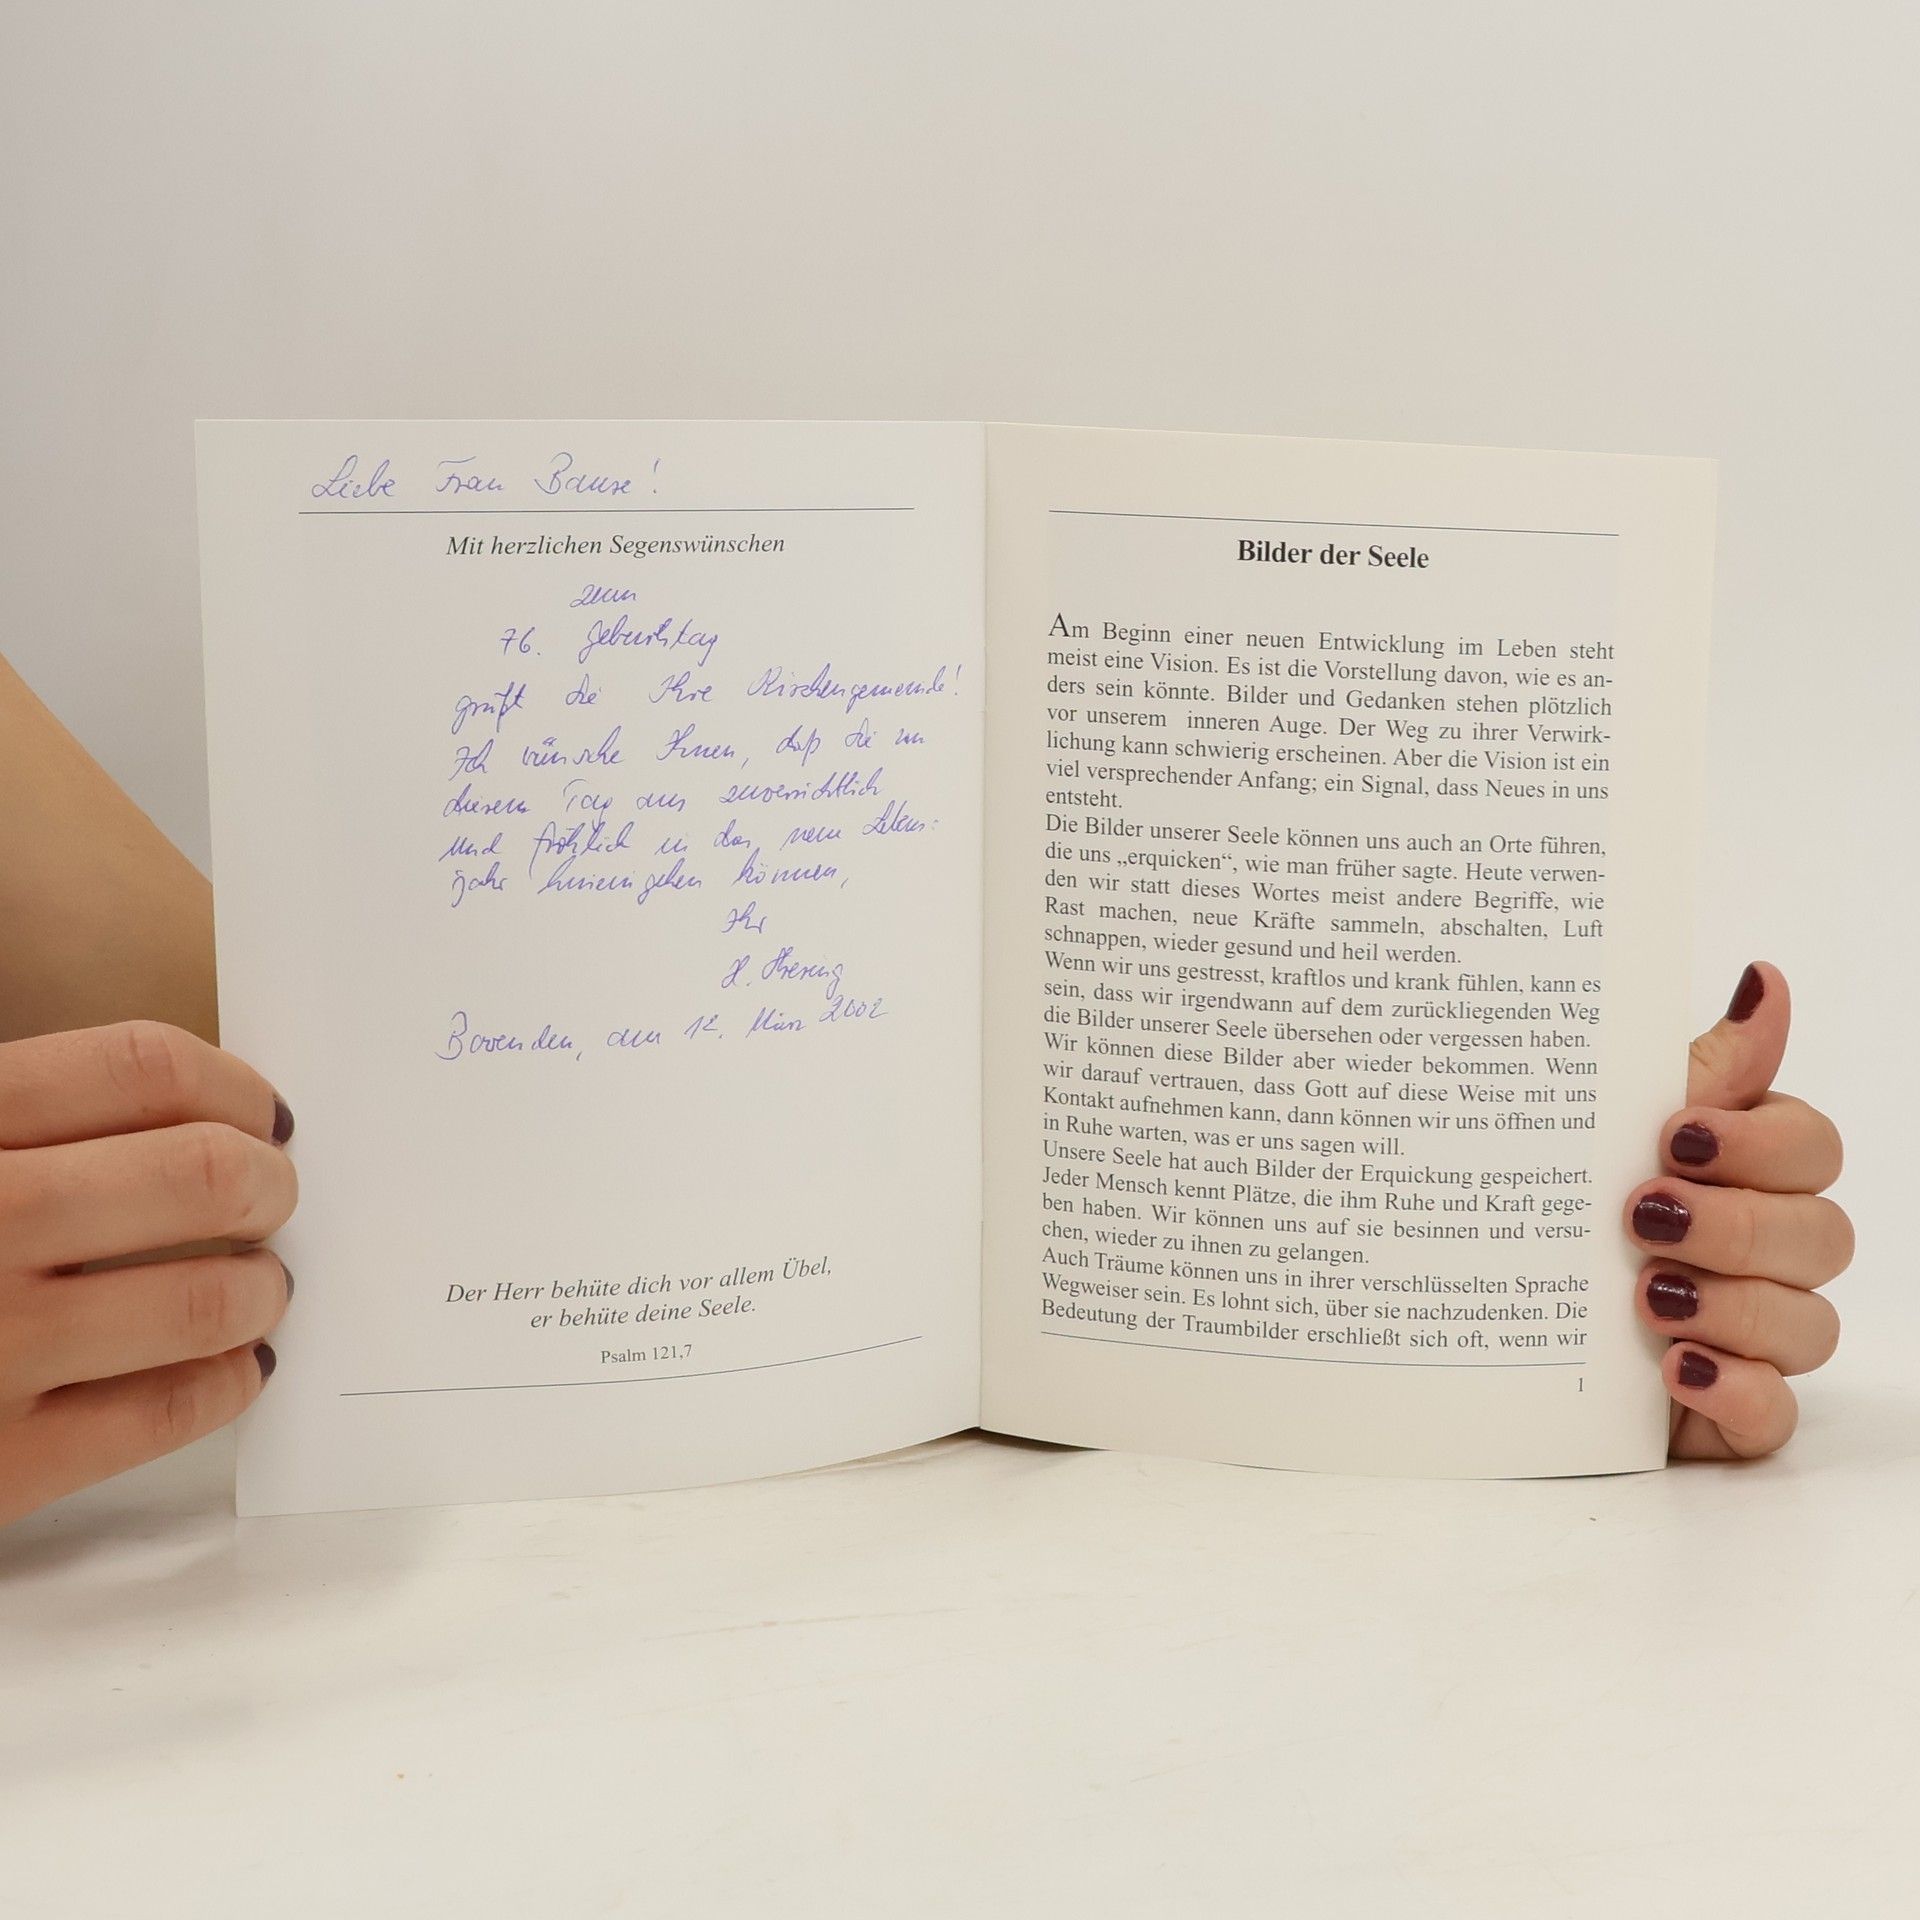 Liebe Frau Bause!
Mit herzlichen Segenswünschen
zum
76. Geburtstag
grüßt Sie Ihre Kirchengemeinde!
Ich wünsche Ihnen, daß Sie an
diesem Tag aus zuversichtlich
und fröhlich in das neue Lebens-
jahr hineingehen können,
Ihr
Bovenden, am 12. März 2002
Der Herr behüte dich vor allem Übel,
er behüte deine Seele.
Psalm 121,7
Bilder der Seele
Am Beginn einer neuen Entwicklung im Leben steht
meist eine Vision. Es ist die Vorstellung davon, wie es an-
ders sein könnte. Bilder und Gedanken stehen plötzlich
vor unserem inneren Auge. Der Weg zu ihrer Verwirk-
lichung kann schwierig erscheinen. Aber die Vision ist ein
viel versprechender Anfang; ein Signal, dass Neues in uns
entsteht.
Die Bilder unserer Seele können uns auch an Orte führen,
die uns „erquicken“, wie man früher sagte. Heute verwen-
den wir statt dieses Wortes meist andere Begriffe, wie
Rast machen, neue Kräfte sammeln, abschalten, Luft
schnappen, wieder gesund und heil werden.
Wenn wir uns gestresst, kraftlos und krank fühlen, kann es
sein, dass wir irgendwann auf dem zurückliegenden Weg
die Bilder unserer Seele übersehen oder vergessen haben.
Wir können diese Bilder aber wieder bekommen. Wenn
wir darauf vertrauen, dass Gott auf diese Weise mit uns
Kontakt aufnehmen kann, dann können wir uns öffnen und
in Ruhe warten, was er uns sagen will.
Unsere Seele hat auch Bilder der Erquickung gespeichert.
Jeder Mensch kennt Plätze, die ihm Ruhe und Kraft gege-
ben haben. Wir können uns auf sie besinnen und versu-
chen, wieder zu ihnen zu gelangen.
Auch Träume können uns in ihrer verschlüsselten Sprache
Wegweiser sein. Es lohnt sich, über sie nachzudenken. Die
Bedeutung der Traumbilder erschließt sich oft, wenn wir
1